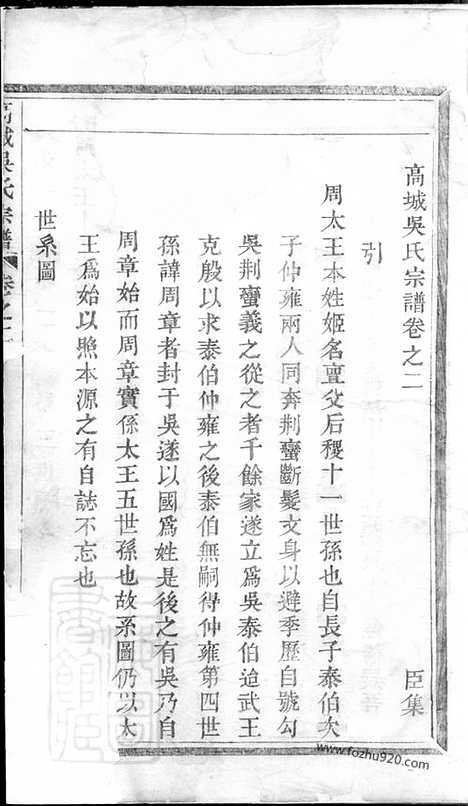 高城吳氏宗譜卷之二　臣集
引
周太王本姓姬名亶父后稷十一世孫也自長子泰伯次
子仲雍兩人同奔荆蠻斷髮文身以避季歷自號勾
吳荆蠻義之從之者千餘家遂立爲吳泰伯迨武王
克殷以求泰伯仲雍之後泰伯無嗣得仲雍第四世
孫諱周章者封于吳遂以國爲姓是後之有吳乃自
周章始而周章實係太王五世孫也故系圖仍以太
王爲始以照本源之有自誌不忘也
世系圖
高城吳氏宗譜 卷之二
www.fozhu920.com